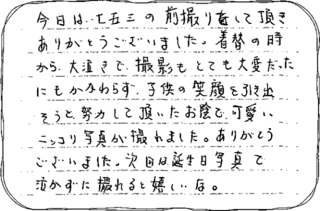 今日は、七五三の前撮りをして頂き
ありがとうございました。着替の時
から大泣きで、撮影もとても大変だった
にもかかわらず、子供の笑顔を引き出
そうと努力して頂いたお陰で、可愛い、
ニッコリ写真が撮れました。ありがとう
ございました。次回は誕生日写真で
泣かずに撮れると嬉しいな。